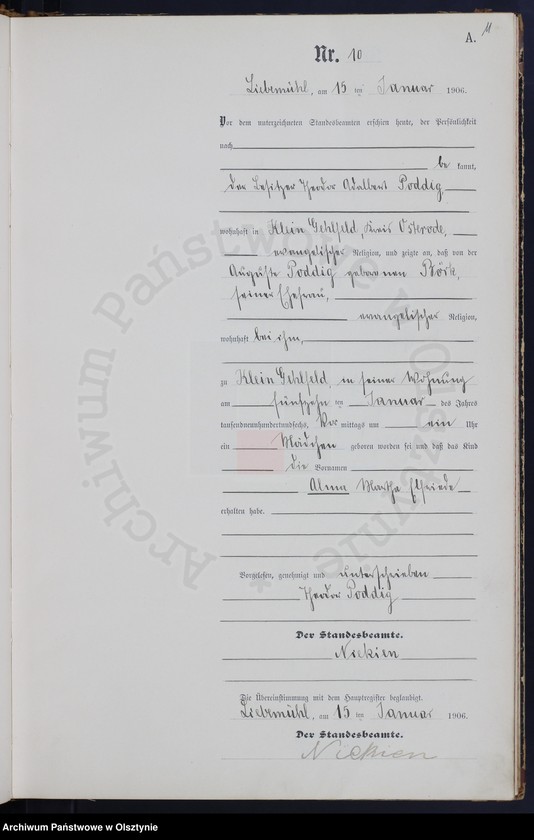 A. 11
Nr. 10
Liebemühl, am 15 ten Januar 1906.
Vor dem unterzeichneten Standesbeamten erschien heute, der Persönlichkeit
nach
be kannt,
der Besitzer Theodor Adalbert Poddig
wohnhaft in Klein Gehlfeld, Kreis Osterode,
evangelischer Religion, und zeigte an, daß von der
Auguste Poddig geborenen
seiner Ehefrau,
evangelischer Religion,
wohnhaft bei ihm,
zu Klein Gehlfeld, in seiner Wohnung
am fünfzehn ten Januar des Jahres
tausendneunhundertundsechs, Vor mittags um ein Uhr
ein Mädchen geboren worden sei und daß das Kind
die Vornamen
Alma Martha Elfriede
erhalten habe.
Vorgelesen, genehmigt und unterschrieben
Theodor Poddig
Der Standesbeamte.
Nickien
Die Übereinstimmung mit dem Hauptregister beglaubigt.
Liebemühl, am 15 ten Januar 1906.
Der Standesbeamte.
Nickien
Archiwum Państwowe w Olsztynie *
Archiwum Państwowe w Olsztynie